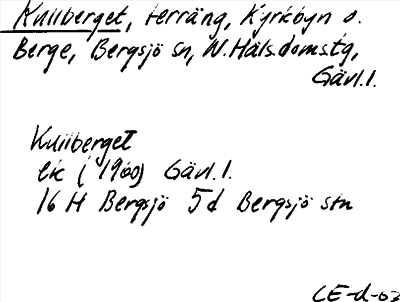 Kullberget, terräng, Kyrkbyn o.
Berge, Bergsjö sn, N.Häls.domstg,
Gävl.l.
Kullberget
ek (1960) Gävl.l.
16 H Bergsjö 5d Bergsjö stn
CE-d-02